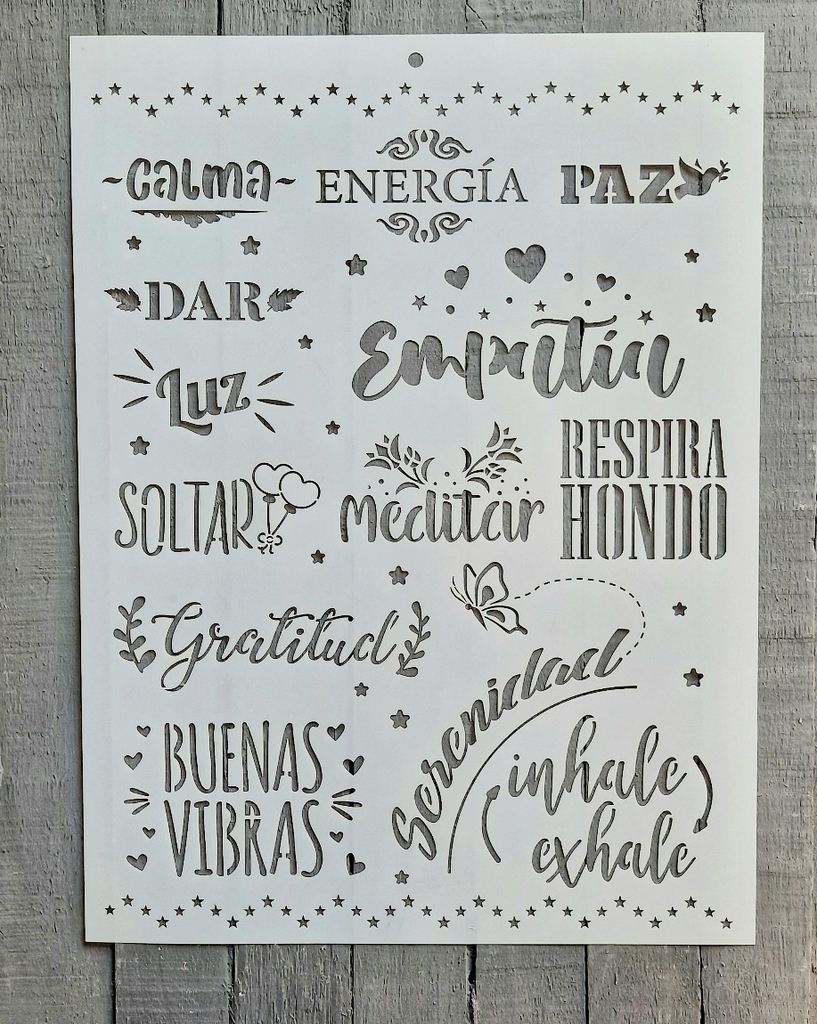 ~Calma~
ENERGÍA
PAZ
DAR
Empatía
Luz
RESPIRA
HONDO
SOLTAR
Meditar
Gratitud
Serenidad
BUENAS
VIBRAS
inhale
exhale